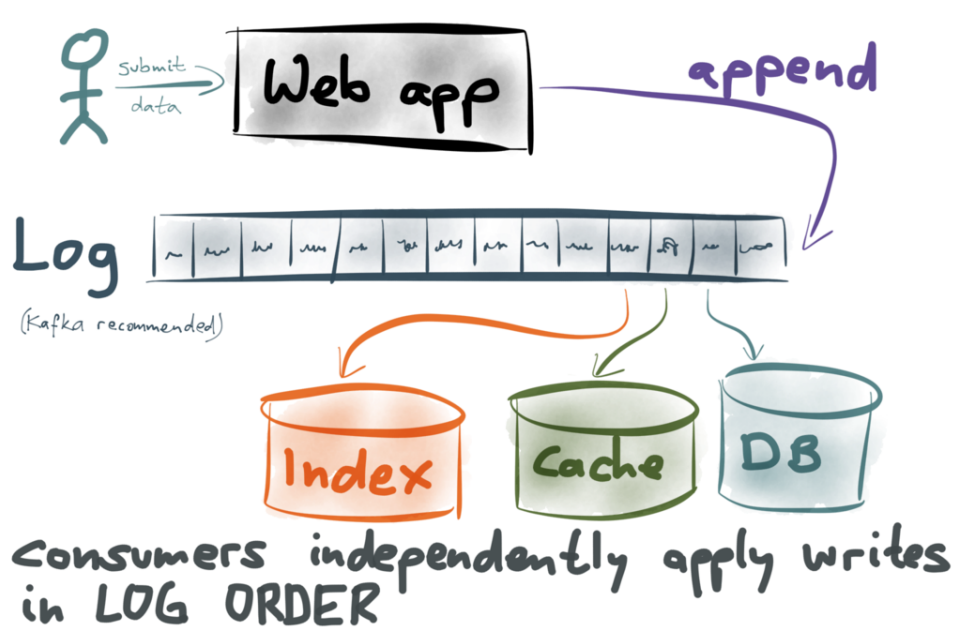 submit
data
Web app
append
Log
(Kafka recommended)
Index
Cache
DB
consumers independently apply writes
in LOG ORDER